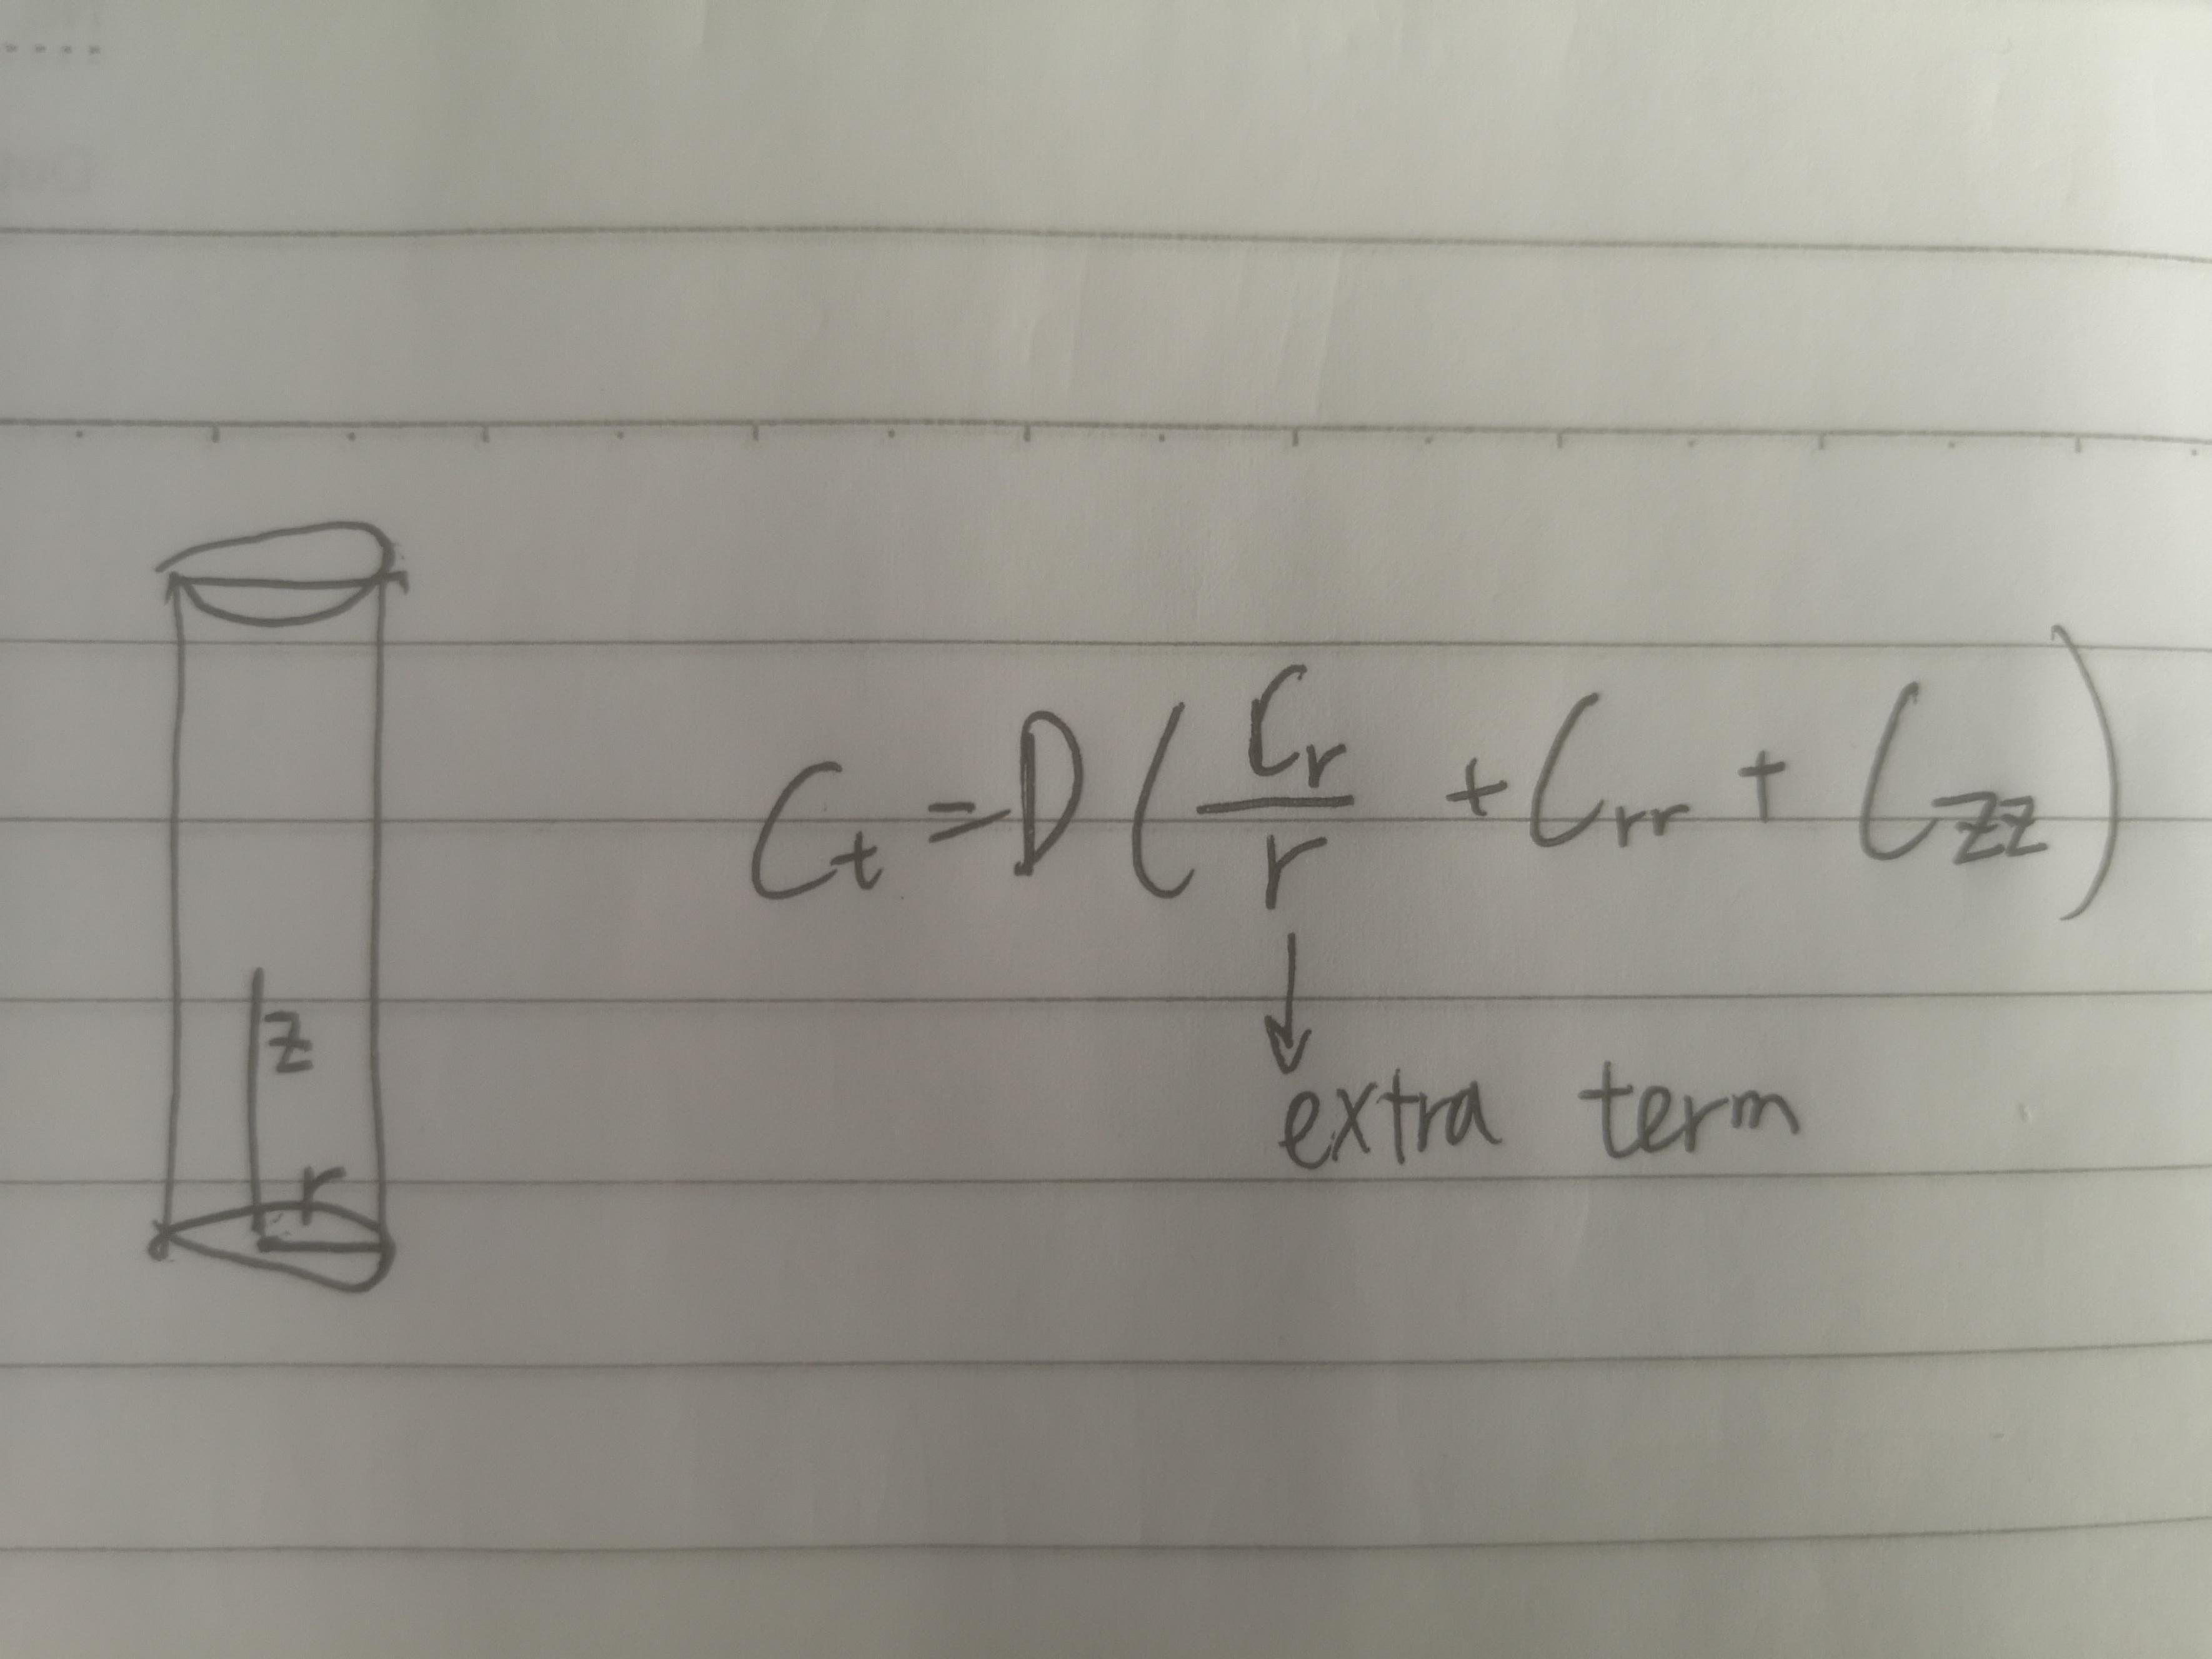 C_t = D ( C_r / r + C_rr + C_zz )
extra term
z
r